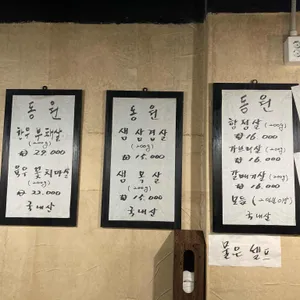 동원
한우 부채살
(200g)
₩ 29.000
한우 꽃 치마살
₩ 33.000
국내산
동원
생 삼겹살
(200g)
₩ 15.000
생 목살
(200g)
₩ 15.000
국내산
동원
항정살 (200g)
₩ 16.000
가브리살 (200g)
₩ 16.000
갈매기살 (200g)
₩ 16.000
모듬
국내산
물은 셀프